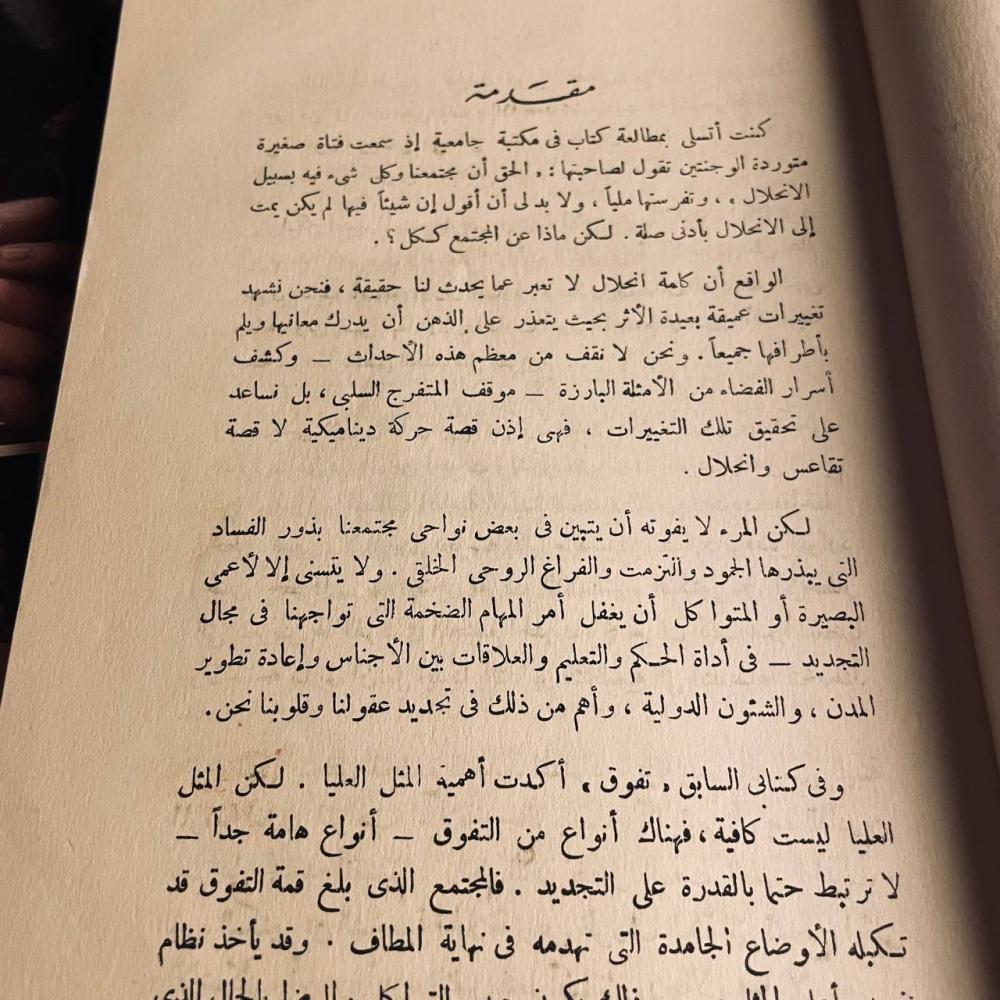 مقدمة
كنت أتسلى بمطالعة كتاب فى مكتبة جامعية إذ سمعت فتاة صغيرة
متوردة الوجنتين تقول لصاحبتها : « الحق أن مجتمعنا وكل شىء فيه بسبيل
الانحلال » ، وتفرستها ملياً ، ولا بد لى أن أقول إن شيئاً فيها لم يكن يمت
إلى الانحلال بأدنى صلة . لكن ماذا عن المجتمع ككل ؟ .
الواقع أن كلمة انحلال لا تعبر عما يحدث لنا حقيقة ، فنحن نشهد
تغييرات عميقة بعيدة الأثر بحيث يتعذر على الذهن أن يدرك معانيها ويلم
بأطرافها جميعاً . ونحن لا نقف من معظم هذه الأحداث — وكشف
أسرار الفضاء من الأمثلة البارزة — موقف المتفرج السلبى ، بل نساعد
على تحقيق تلك التغييرات ، فهى إذن قصة حركة ديناميكية لا قصة
تقاعس وانحلال .
لكن المرء لا يفوته أن يتبين فى بعض نواحى مجتمعنا بذور الفساد
التى يبذرها الجمود والتزمت والفراغ الروحى الخلقى . ولا يتسنى إلا لأعمى
البصيرة أو المتواكل أن يغفل أمر المهام الضخمة التى تواجهنا فى مجال
التجديد — فى أداة الحكم والتعليم والعلاقات بين الأجناس وإعادة تطوير
المدن ، والشئون الدولية ، وأهم من ذلك فى تجديد عقولنا وقلوبنا نحن .
وفى كتابى السابق « تفوق » أكدت أهمية المثل العليا . لكن المثل
العليا ليست كافية ، فهناك أنواع من التفوق — أنواع هامة جداً —
لا ترتبط حتما بالقدرة على التجديد . فالمجتمع الذى بلغ قمة التفوق قد
تكبله الأوضاع الجامدة التى تهدمه فى نهاية المطاف . وقد يأخذ نظام